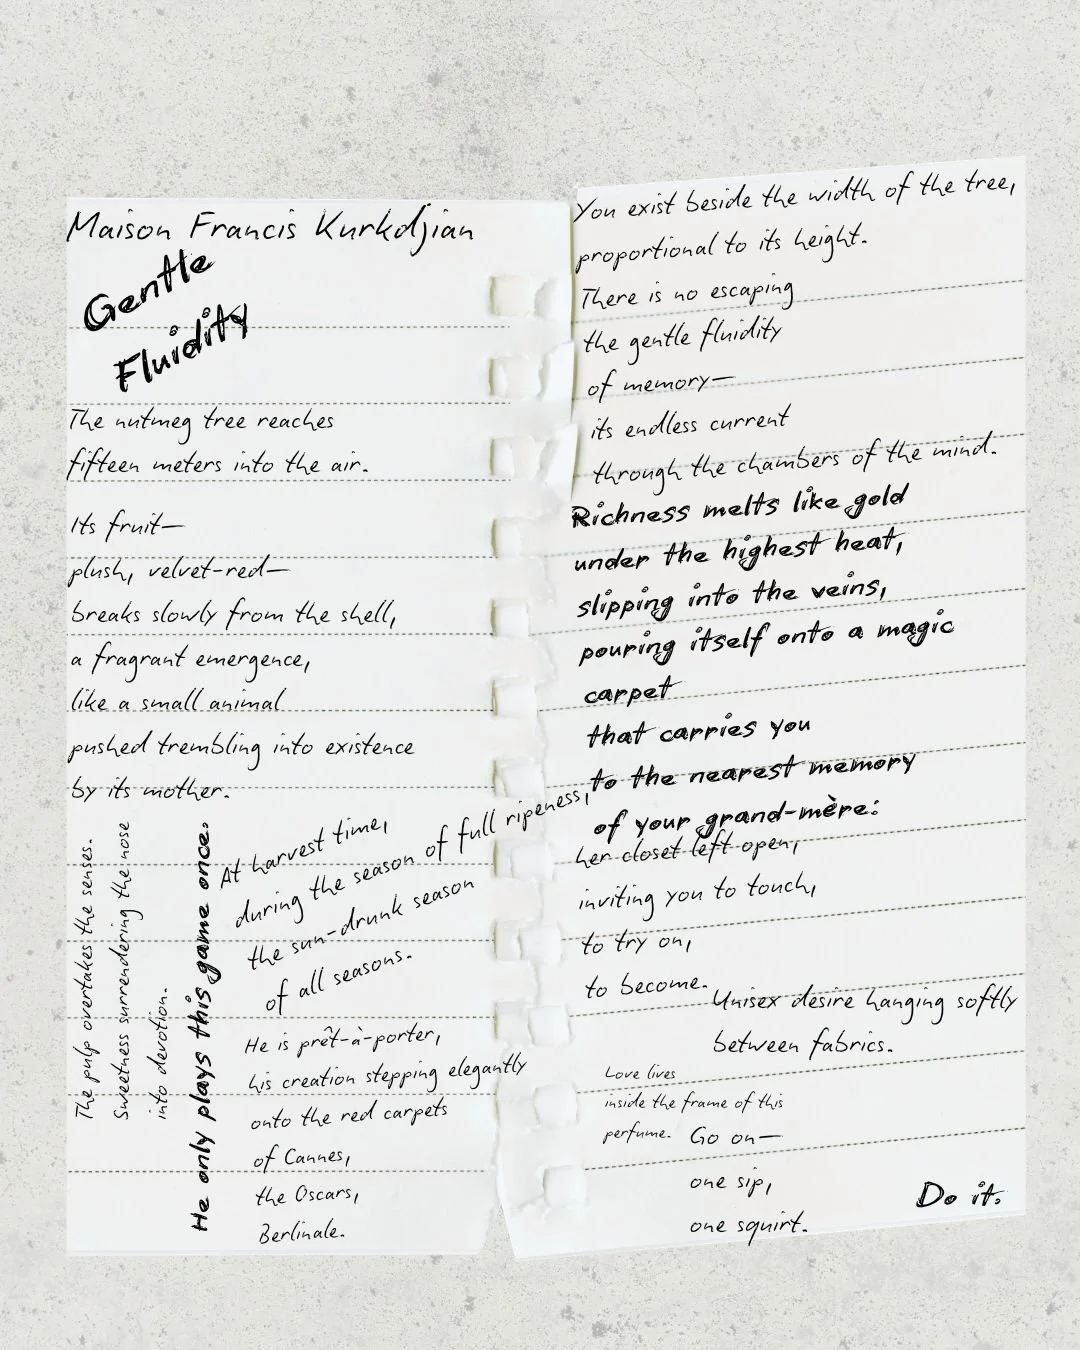 Maison Francis Kurkdjian
Gentle
Fluidity
The nutmeg tree reaches
fifteen meters into the air.
Its fruit—
plush, velvet-red—
breaks slowly from the shell,
a fragrant emergence,
like a small animal
pushed trembling into existence
by its mother.
The pulp overtakes the senses.
Sweetness surrendering the nose
into devotion.
He only plays this game once.
At harvest time,
during the season of full ripeness,
the sun-drunk season
of all seasons.
He is prêt-à-porter,
his creation stepping elegantly
onto the red carpets
of Cannes,
the Oscars,
Berlinale.
You exist beside the width of the tree,
proportional to its height.
There is no escaping
the gentle fluidity
of memory—
its endless current
through the chambers of the mind.
Richness melts like gold
under the highest heat,
slipping into the veins,
pouring itself onto a magic
carpet
that carries you
to the nearest memory
of your grand-mère:
her closet left open,
inviting you to touch,
to try on,
to become.
Unisex desire hanging softly
between fabrics.
Love lives
inside the frame of this
perfume.
Go on—
one sip,
one squirt.
Do it.